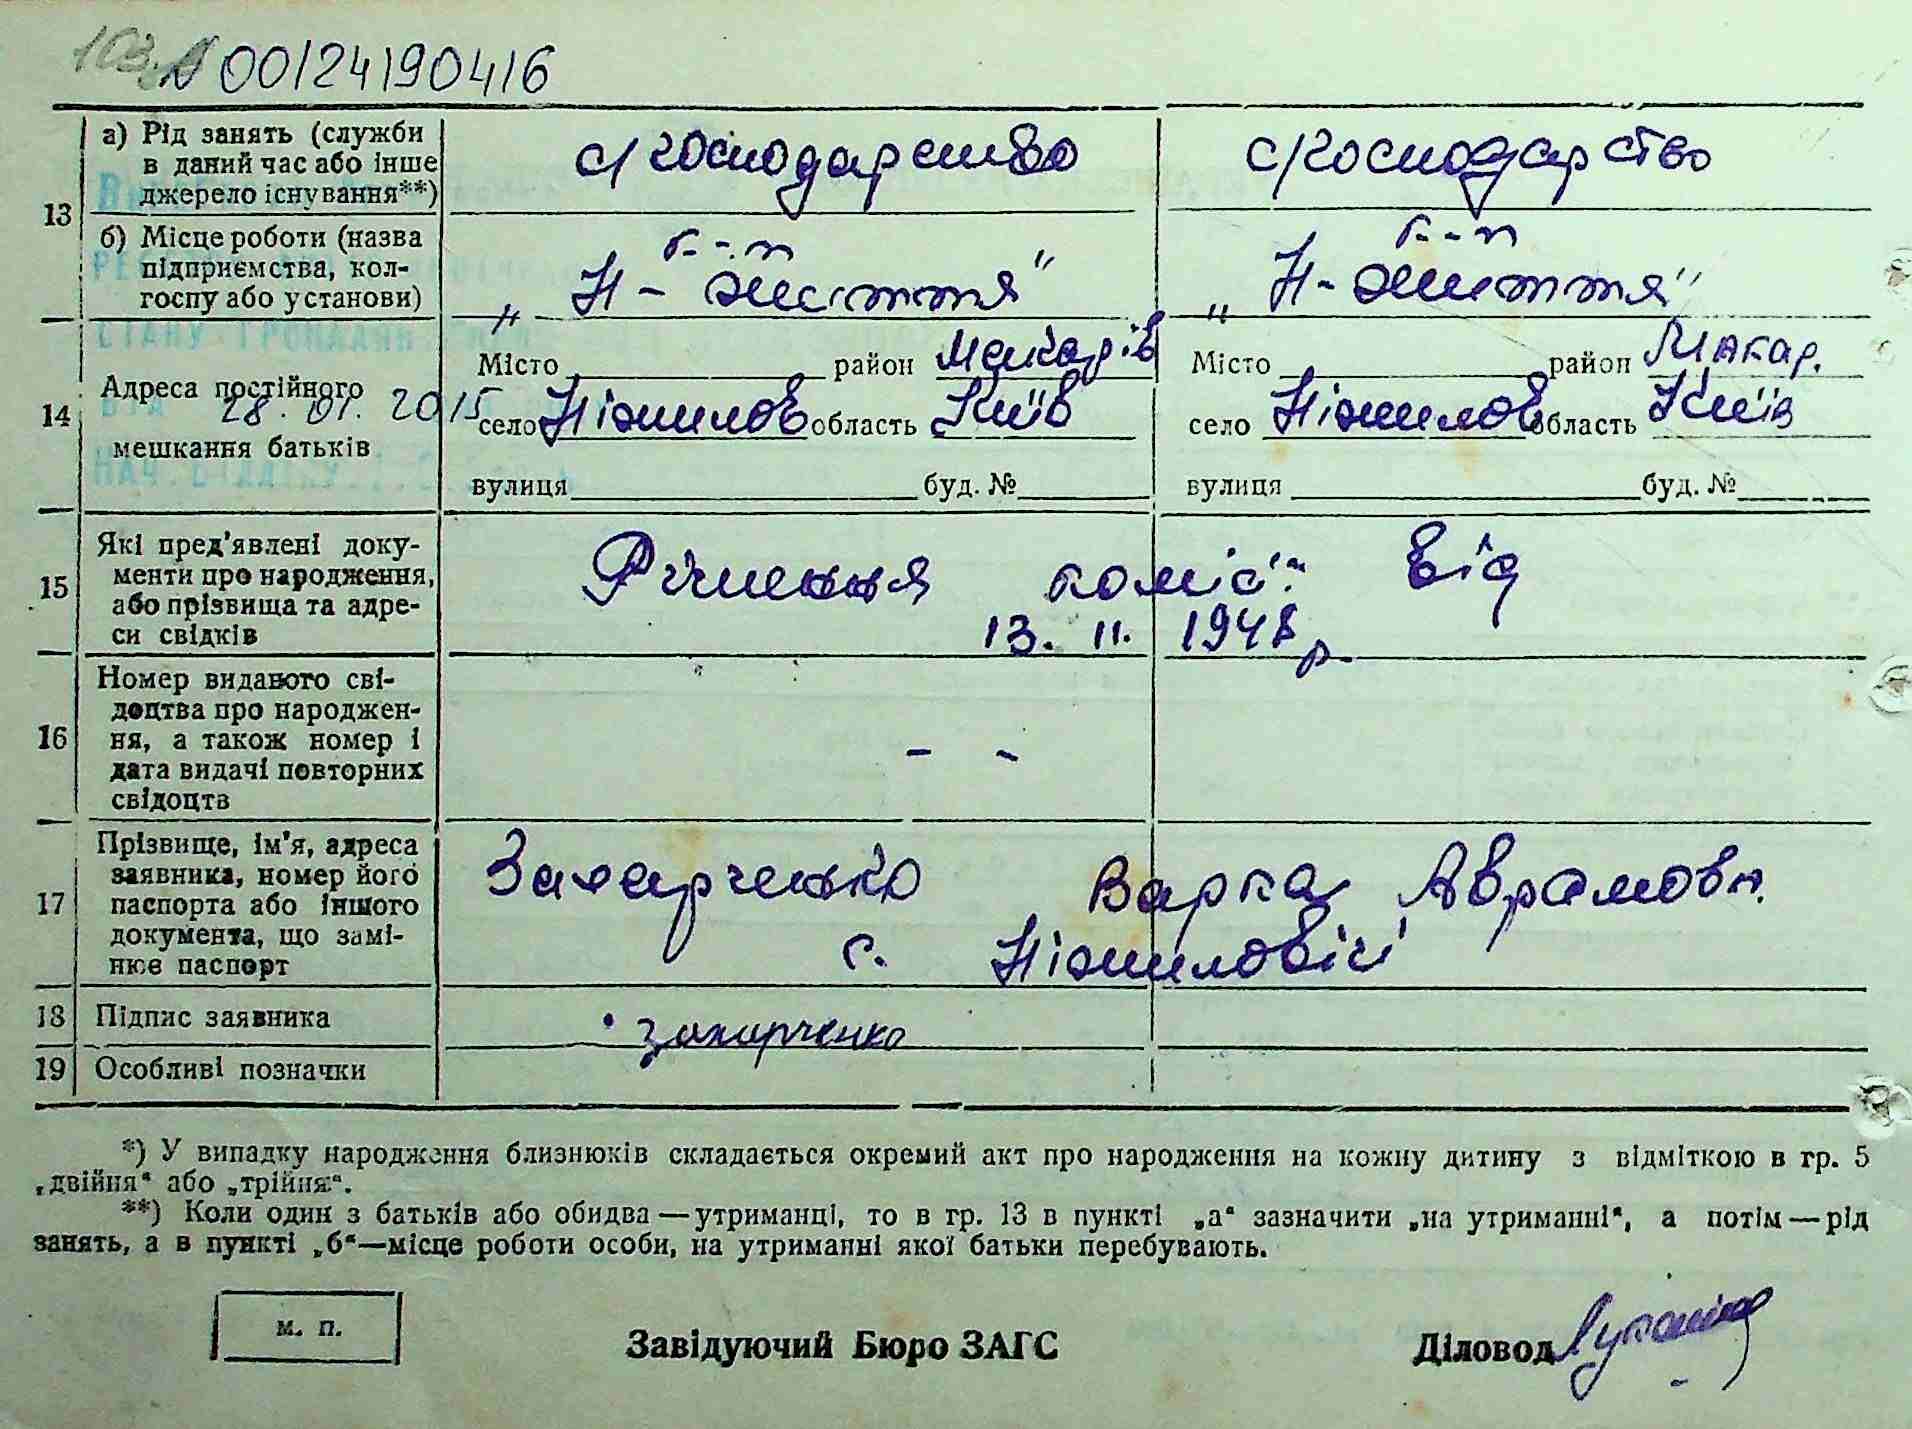 00124190416
13 а) Рід занять (служби в даний час або інше джерело існування**) с/господарство с/господарство
б) Місце роботи (назва підприємства, колгоспу або установи) к-п „Н-життя" к-п „Н-життя"
14 Адреса постійного мешкання батьків
28.01.2015
Місто район Макарів Місто район Макар.
село Ніжилов область Київ село Ніжилов область Київ
вулиця буд. № вулиця буд. №
15 Які пред'явлені документи про народження, або прізвища та адреси свідків Рішення коміс. від
13. 11. 1948 р.
16 Номер виданого свідоцтва про народження, а також номер і дата видачі повторних свідоцтв - -
17 Прізвище, ім'я, адреса заявника, номер його паспорта або іншого документа, що замінює паспорт Захарченко Варка Аврамовн.
с. Ніжиловічі
18 Підпис заявника Захарченко
19 Особливі позначки
*) У випадку народження близнюків складається окремий акт про народження на кожну дитину з відміткою в гр. 5
„двійня" або „трійня".
**) Коли один з батьків або обидва — утриманці, то в гр. 13 в пункті „а" зазначити „на утриманні", а потім — рід
занять, а в пункті „б"—місце роботи особи, на утриманні якої батьки перебувають.
м. п.
Завідуючий Бюро ЗАГС Діловод